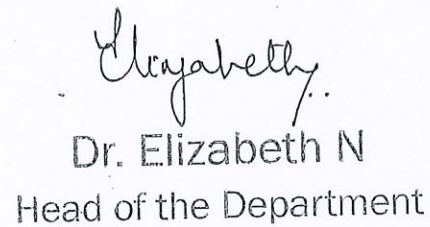 Elizabeth
Dr. Elizabeth N
Head of the Department